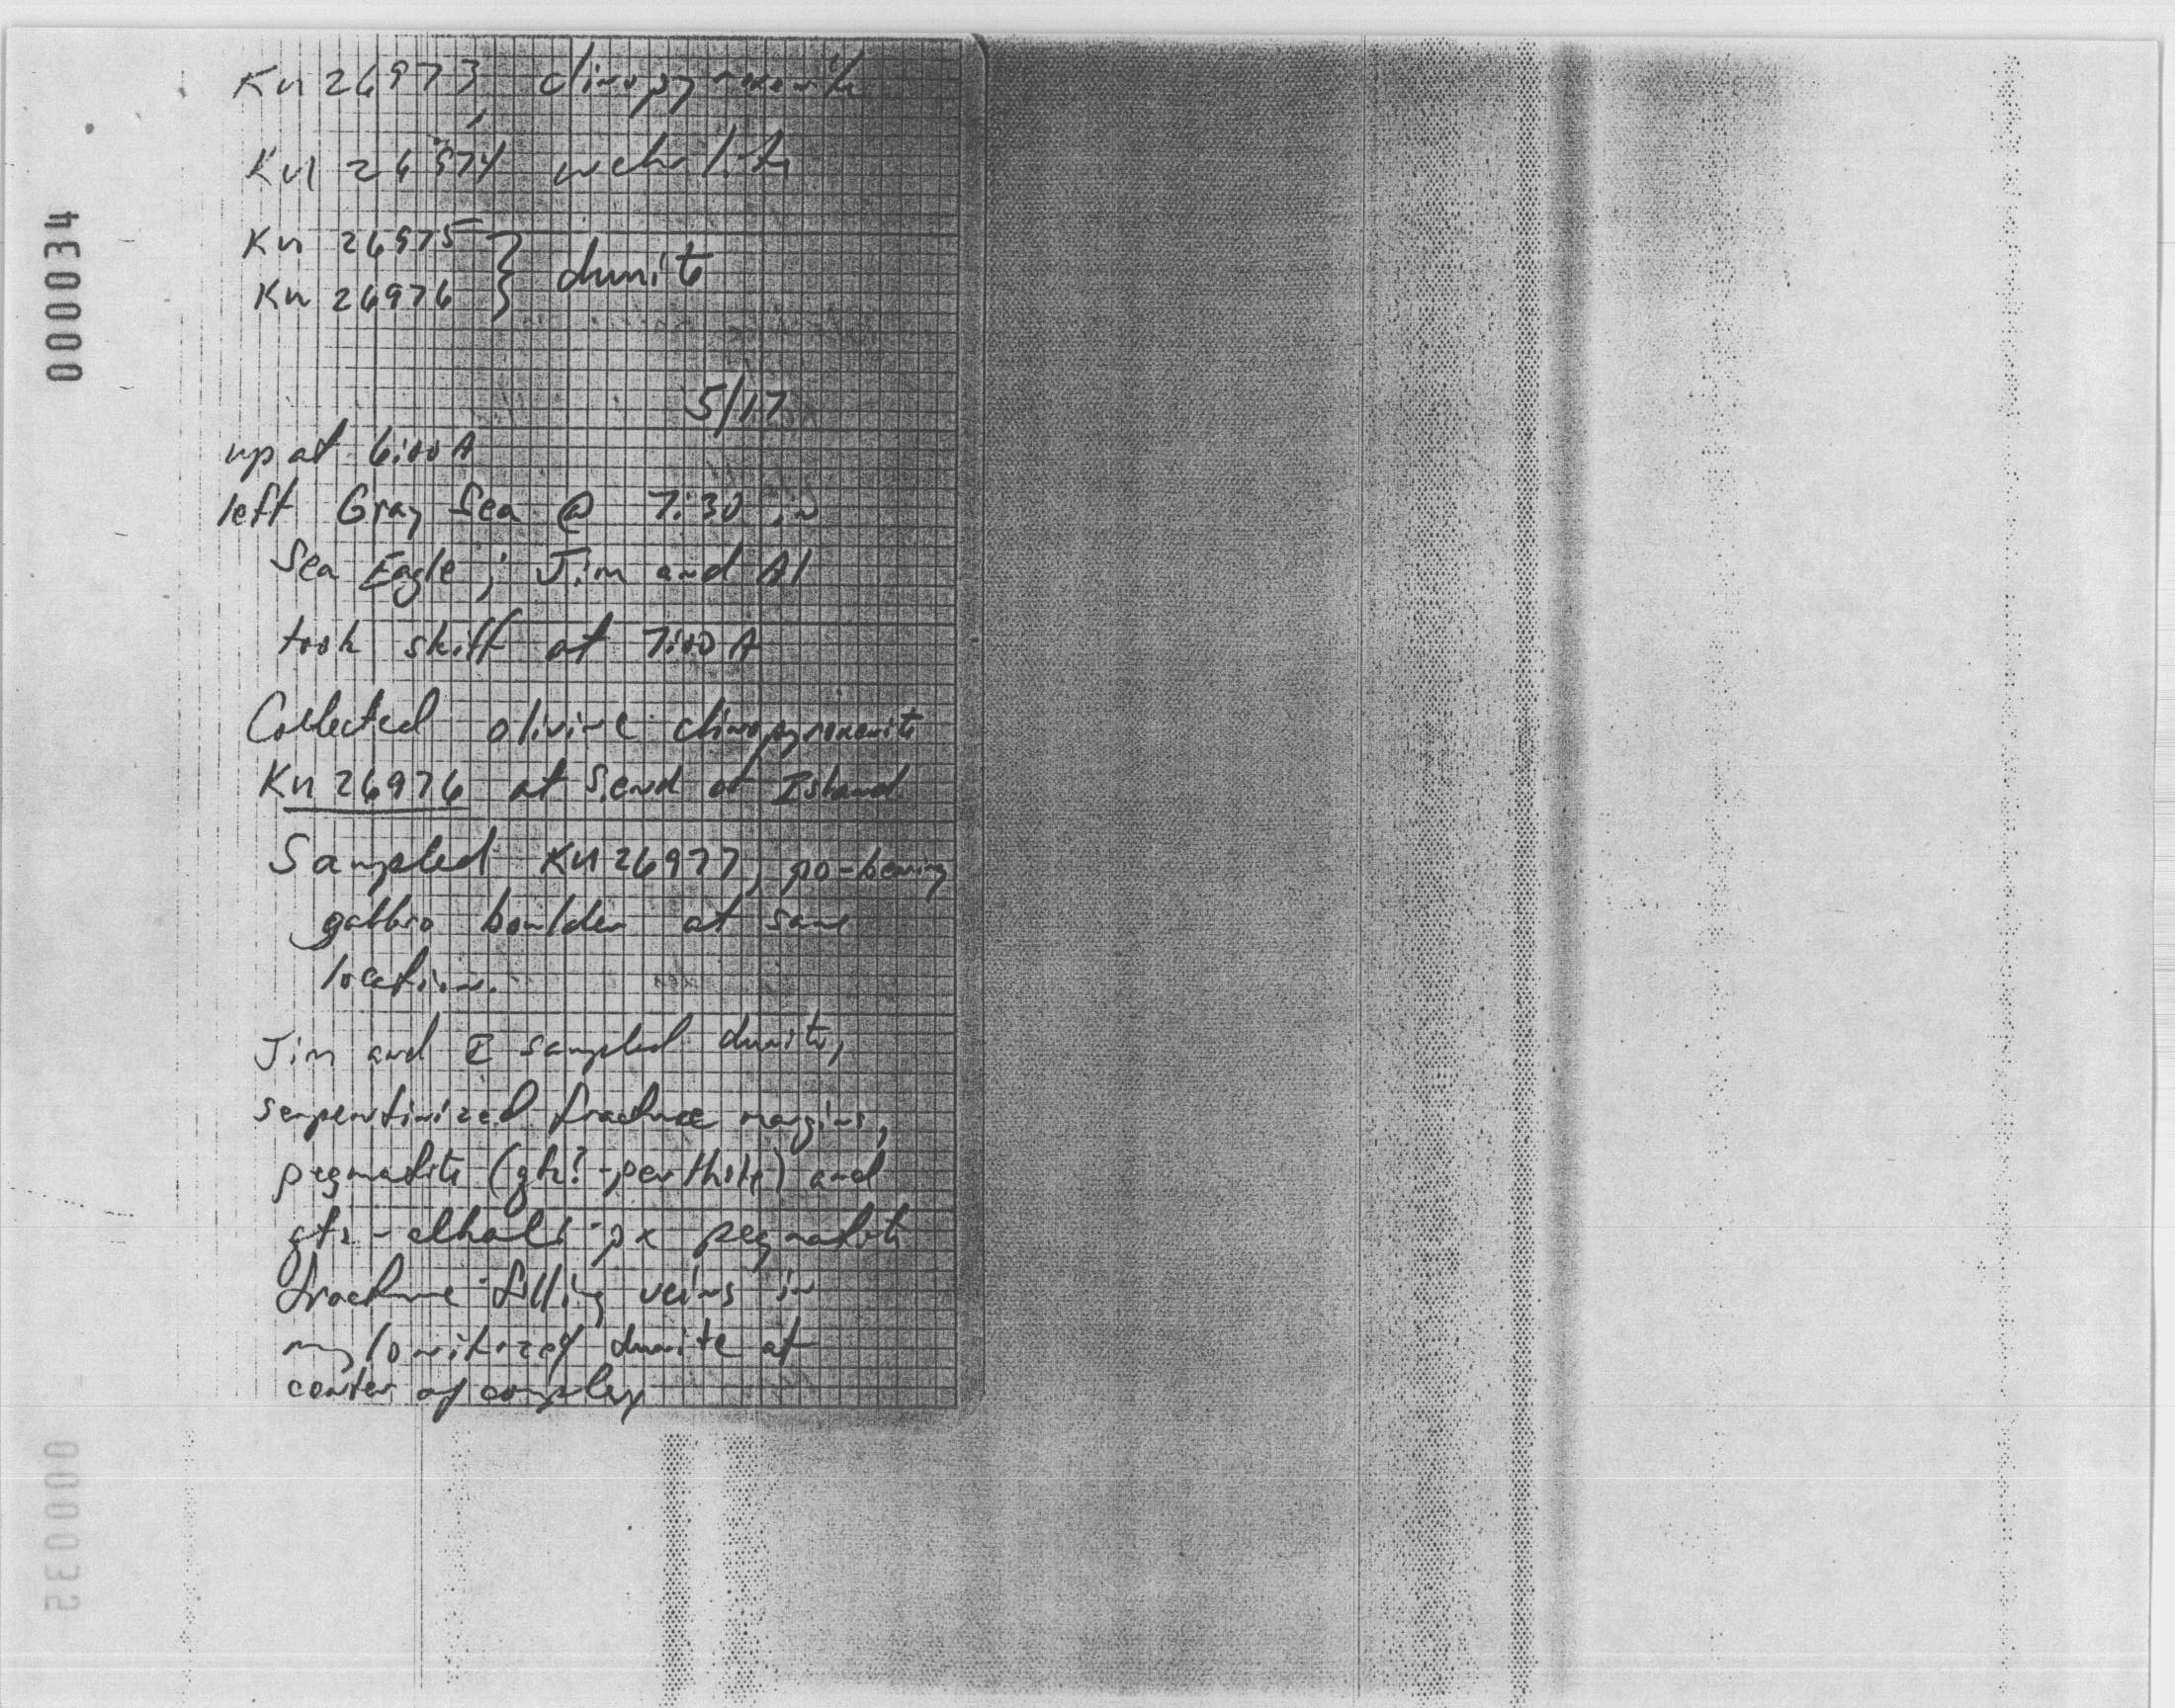 000034
Kn 26973, clinopyroxenite
Kn 26974 wehrlite
Kn 26975 } dunite
Kn 26976
5/17
up at 6:00 A
left Gray Sea @ 7:30 in
Sea Eagle; Jim and Al
took skiff at 7:00 A
Collected olivine clinopyroxenite
Kn 26976 at S. end of Island.
Sampled Kn 26977, po-bearing
gabbro boulder at same
location.
Jim and I sampled dunite,
serpentinized fracture margins,
pegmatite (qtz?-perthite) and
qtz-alkali px pegmatite
fracture filling veins in
mylonitized dunite at
center of complex
000035